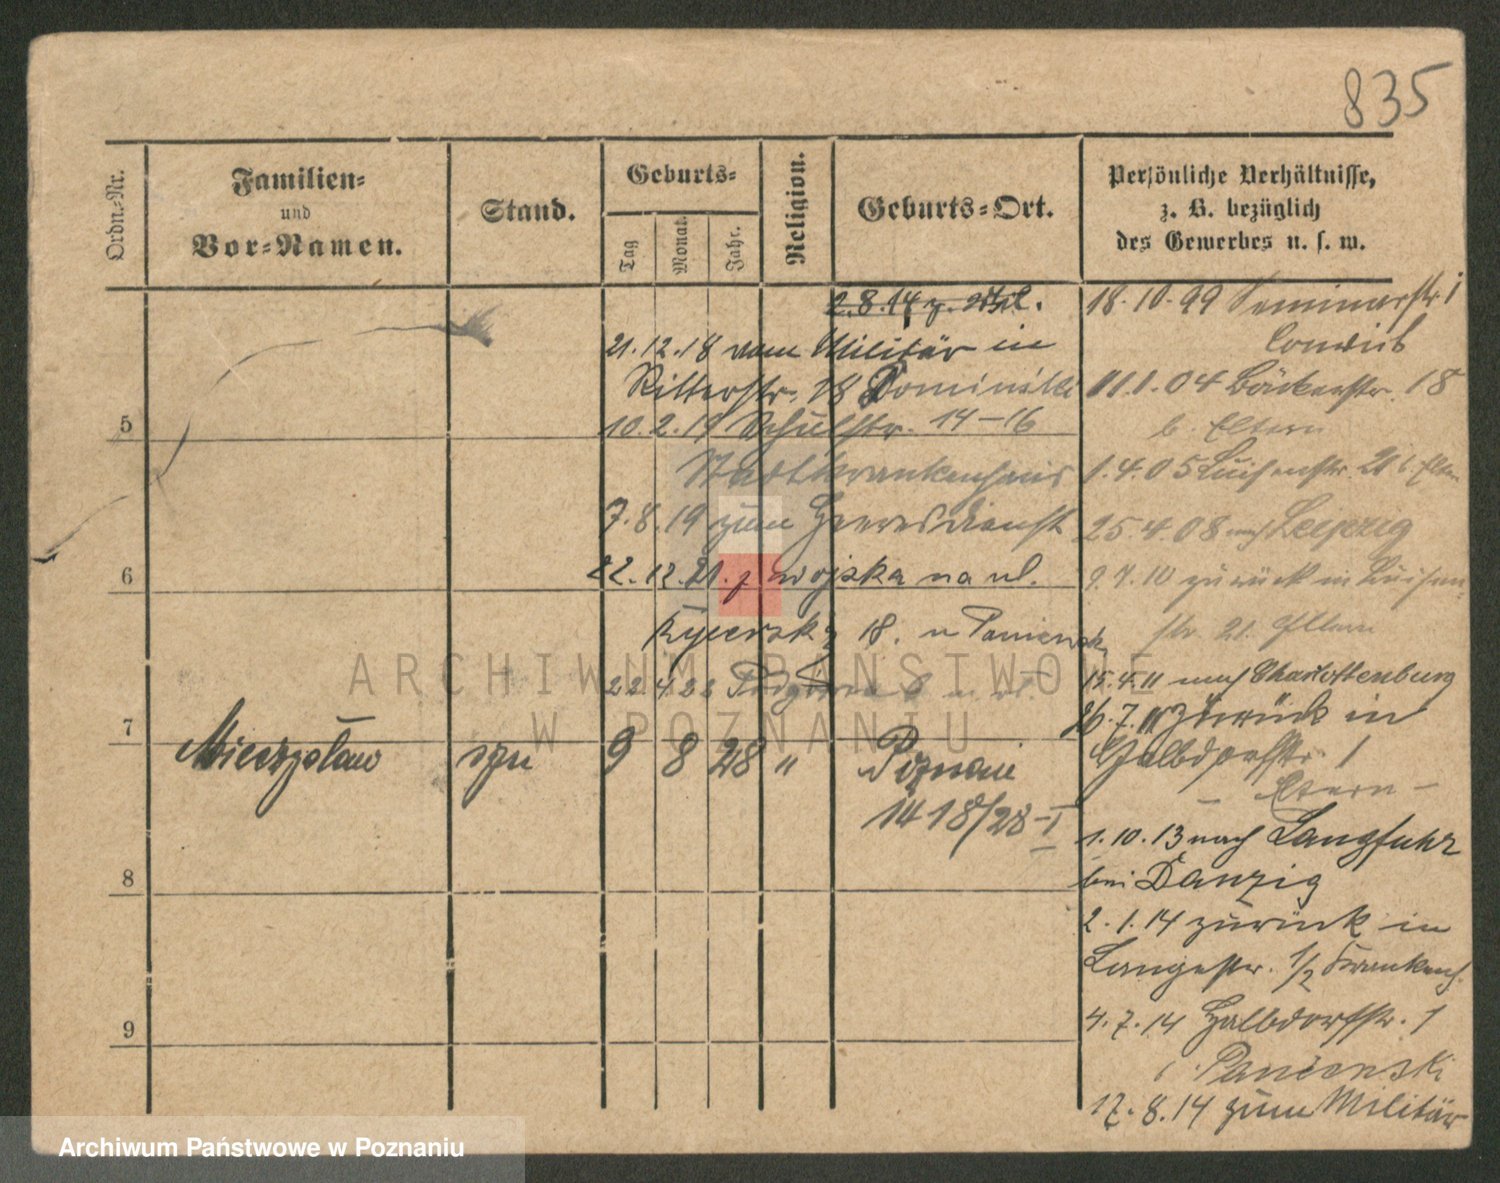 835
Ordn.-Nr.
Familien-
und
Vor-Namen.
Stand.
Geburts-
Tag
Monat.
Jahr.
Religion.
Geburts-Ort.
Persönliche Verhältnisse,
z. B. bezüglich
des Gewerbes u. s. w.
2.8.14 z.
21.12.18 vom Militär in
Ritterstr. 18 Dominski
10.2.19 Schulstr. 14-16
Stadtkrankenhaus
7.8.19 zum Heeresdienst
22.12.21. z wojska na ul.
18. u Panienski
22 4 22
5
6
7
8
9
Mieczysław syn 9 8 28 " Poznań
1418/28-I
18.10.99 Seminarstr. 1
Convict
11.1.04 Bäckerstr. 18
b. Eltern
1.4.05 Luisenstr. 21 b. Eltern
25.4.08 nach Leipzig
9.7.10 zurück in Luisen
str. 21. Eltern
15.4.11 nach Charlottenburg
26.7.11 zurück in
Halbdorfstr. 1
- Eltern -
1.10.13 nach Langfuhr
bei Danzig
2.1.14 zurück in
Langestr. 1/2 Krankenh.
4.7.14 Halbdorfstr. 1
Panienski
17.8.14 zum Militär
ARCHIWUM PAŃSTWOWE
W POZNANIU
Archiwum Państwowe w Poznaniu